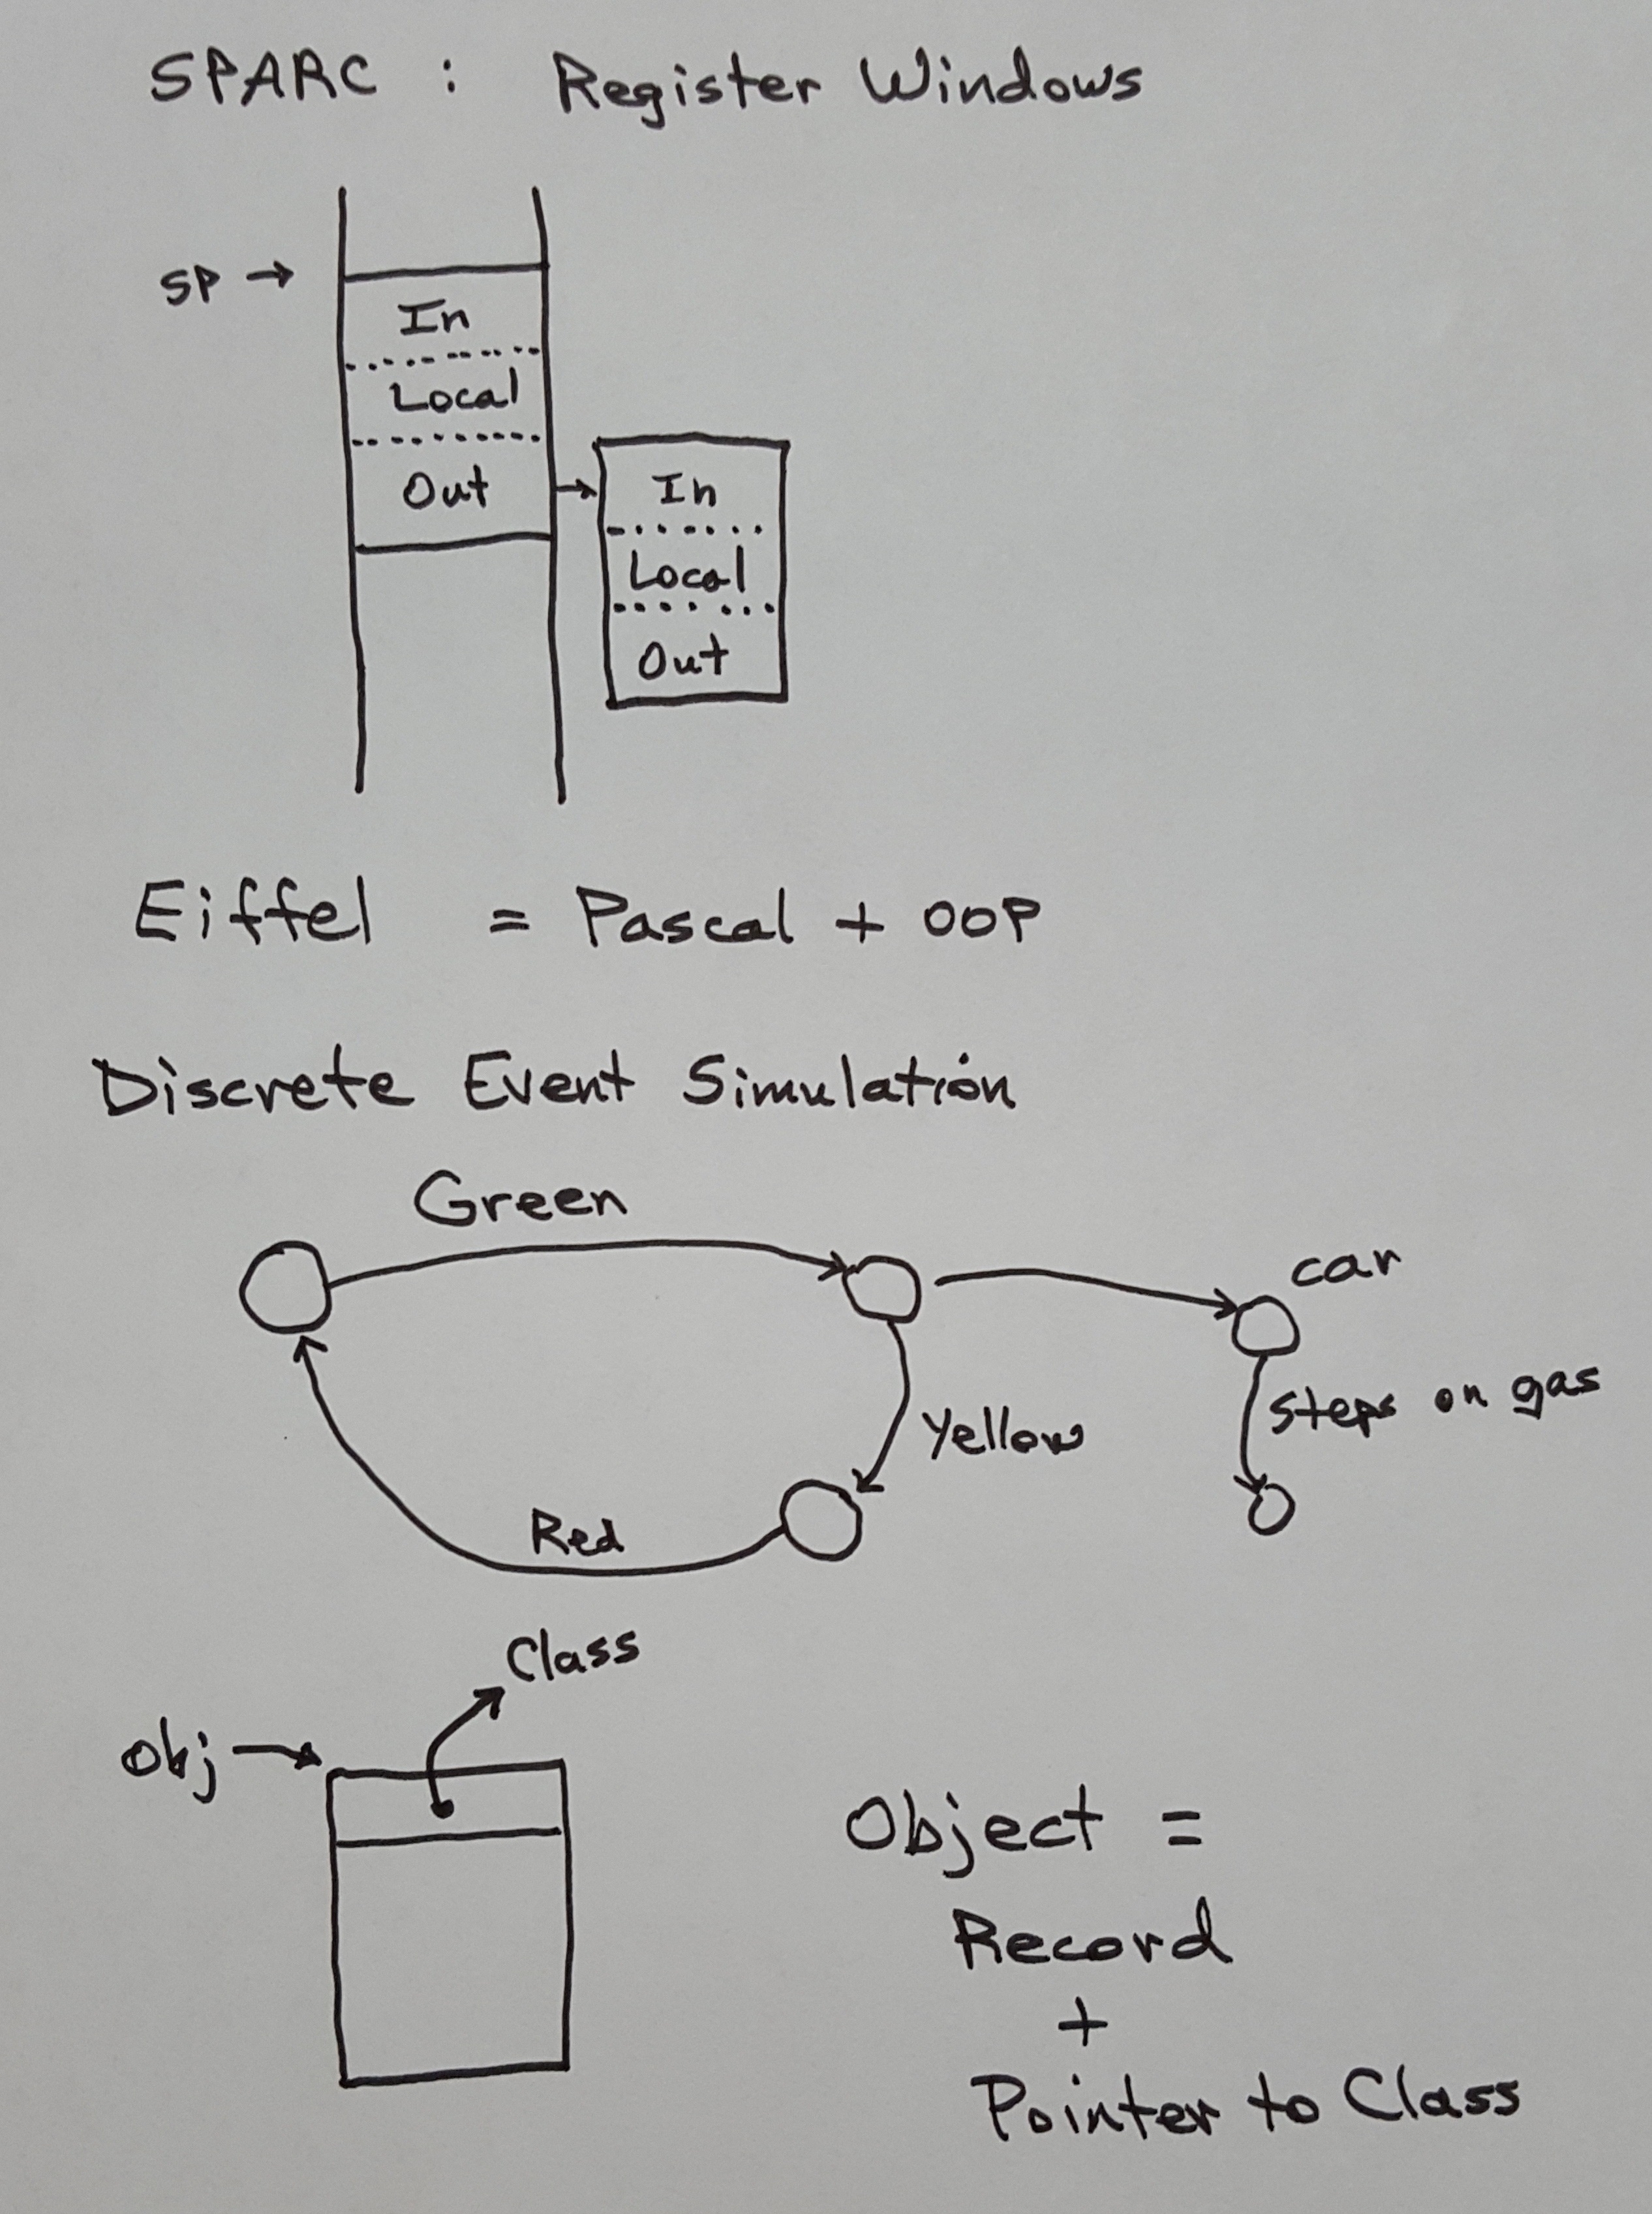 SPARC : Register Windows
SP →
In
Local
Out
In
Local
Out
Eiffel = Pascal + OOP
Discrete Event Simulation
Green
car
steps on gas
Yellow
Red
Class
obj
Object =
Record
+
Pointer to Class